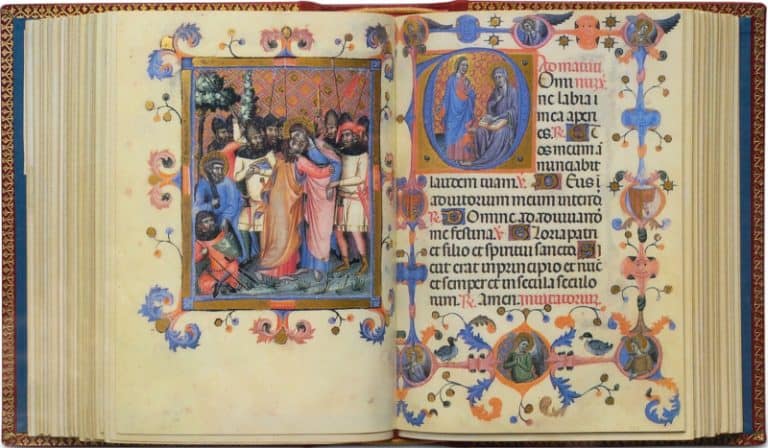 D Ad matuti
omi nuz ℣.
ne labia
mea aperi
es. ℟. Et
os meum a
nunciabit
laudem tuam. ℣. Deus i
adiutorium meum intende
℟. Domine ad adiuvand
me festina ℣. Gloria patri
et filio et spiritui sancto Si
cut erat in principio et nūc
et semper et in secula seculo
rum. ℟. Amen. Invitatoriu